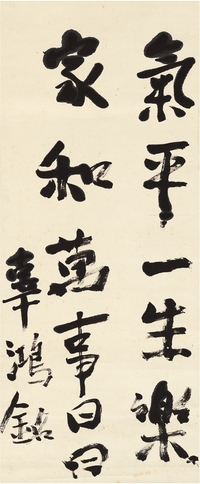 氣平一生樂
家和萬事日日
辜鴻銘